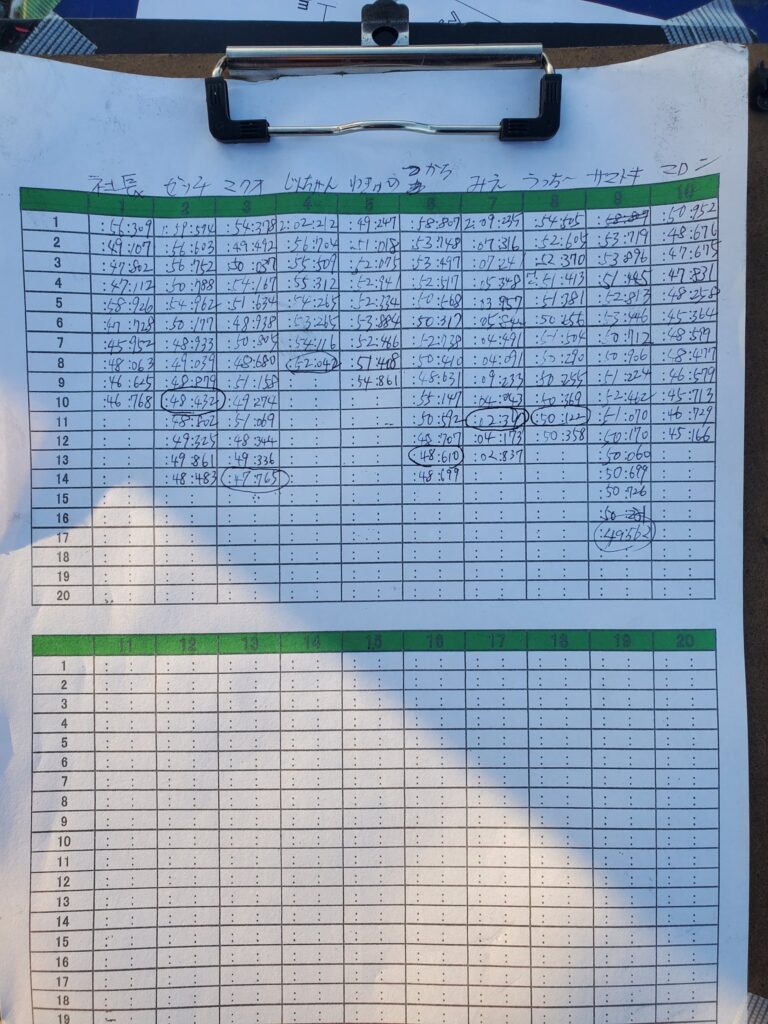 社長 ゼッケ ミクオ じんちゃん つから みえ うっちー ヤマトキ マロニ
1 2 3 4 5 6 7 8 9 10
1 :56:309 :54:378 2:02:212 :49:247 :58:807 2:09:235 :54:505 :50:952
2 :49:107 :51:603 :49:492 :56:704 :51:018 :53:748 :07:316 :52:605 :53:719 :48:676
3 :47:802 :56:752 :50:037 :55:509 :52:075 :53:497 :07:241 :52:370 :53:896 :47:675
4 :47:112 :50:788 :54:167 :55:312 :52:941 :52:517 :05:348 :51:413 :51:445 :47:831
5 :58:926 :54:962 :51:634 :54:265 :52:334 :50:568 :13:957 :51:381 :52:813 :48:258
6 :47:728 :50:177 :48:938 :53:265 :53:884 :50:317 :05:844 :50:256 :53:446 :45:364
7 :45:952 :48:933 :50:805 :54:116 :52:466 :52:738 :04:491 :51:504 :50:712 :48:589
8 :48:063 :49:039 :48:680 :52:042 :51:408 :50:410 :04:091 :50:290 :50:906 :48:477
9 :46:645 :48:879 :51:158 :54:861 :48:631 :09:233 :50:255 :51:224 :46:579
10 :46:768 :48:432 :49:274 :55:147 :04:043 :50:369 :52:462 :45:713
11 :48:802 :51:069 :50:592 :50:122 :51:070 :46:729
12 :49:325 :48:344 :48:707 :04:173 :50:358 :50:170 :45:166
13 :49:861 :49:336 :48:610 :02:837 :50:060
14 :48:483 :47:765 :48:699 :50:699
15 :50:726
16
17 :49562
18
19
20
11 12 13 14 15 16 17 18 19 20
1
2
3
4
5
6
7
8
9
10
11
12
13
14
15
16
17
18
19